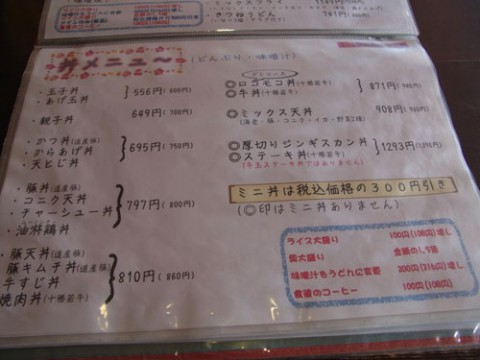 ミックスフライ
きつねうどん
丼メニュー (どんぶり・味噌汁)
・玉子丼
・あげ玉丼
556円(600円)
・親子丼 649円(700円)
・かつ丼(道産豚)
・からあげ丼
・天とじ丼
695円(750円)
・豚丼(道産豚)
・コニク天丼
・チャーシュー丼
・油淋鶏丼
797円(800円)
・豚天丼(道産豚)
豚キムチ丼(道産豚)
牛すじ丼
焼肉丼(十勝若牛)
810円(860円)
◎ロコモコ丼(十勝若牛)
◎牛丼(十勝若牛)
871円
◎ミックス天丼 908円
(海老・豚・コニク・イカ・野菜2種)
◎厚切りジンギスカン丼
◎ステーキ丼(十勝若牛)
1293円
(牛玉ステーキ丼ではありません)
ミニ丼は税込価格の300円引き
(◎印はミニ丼ありません)
ライス大盛り 100円(108円)増し
麺大盛り
味噌汁もうどんに変更 200円(216円)増し
食後のコーヒー 100円(108円)